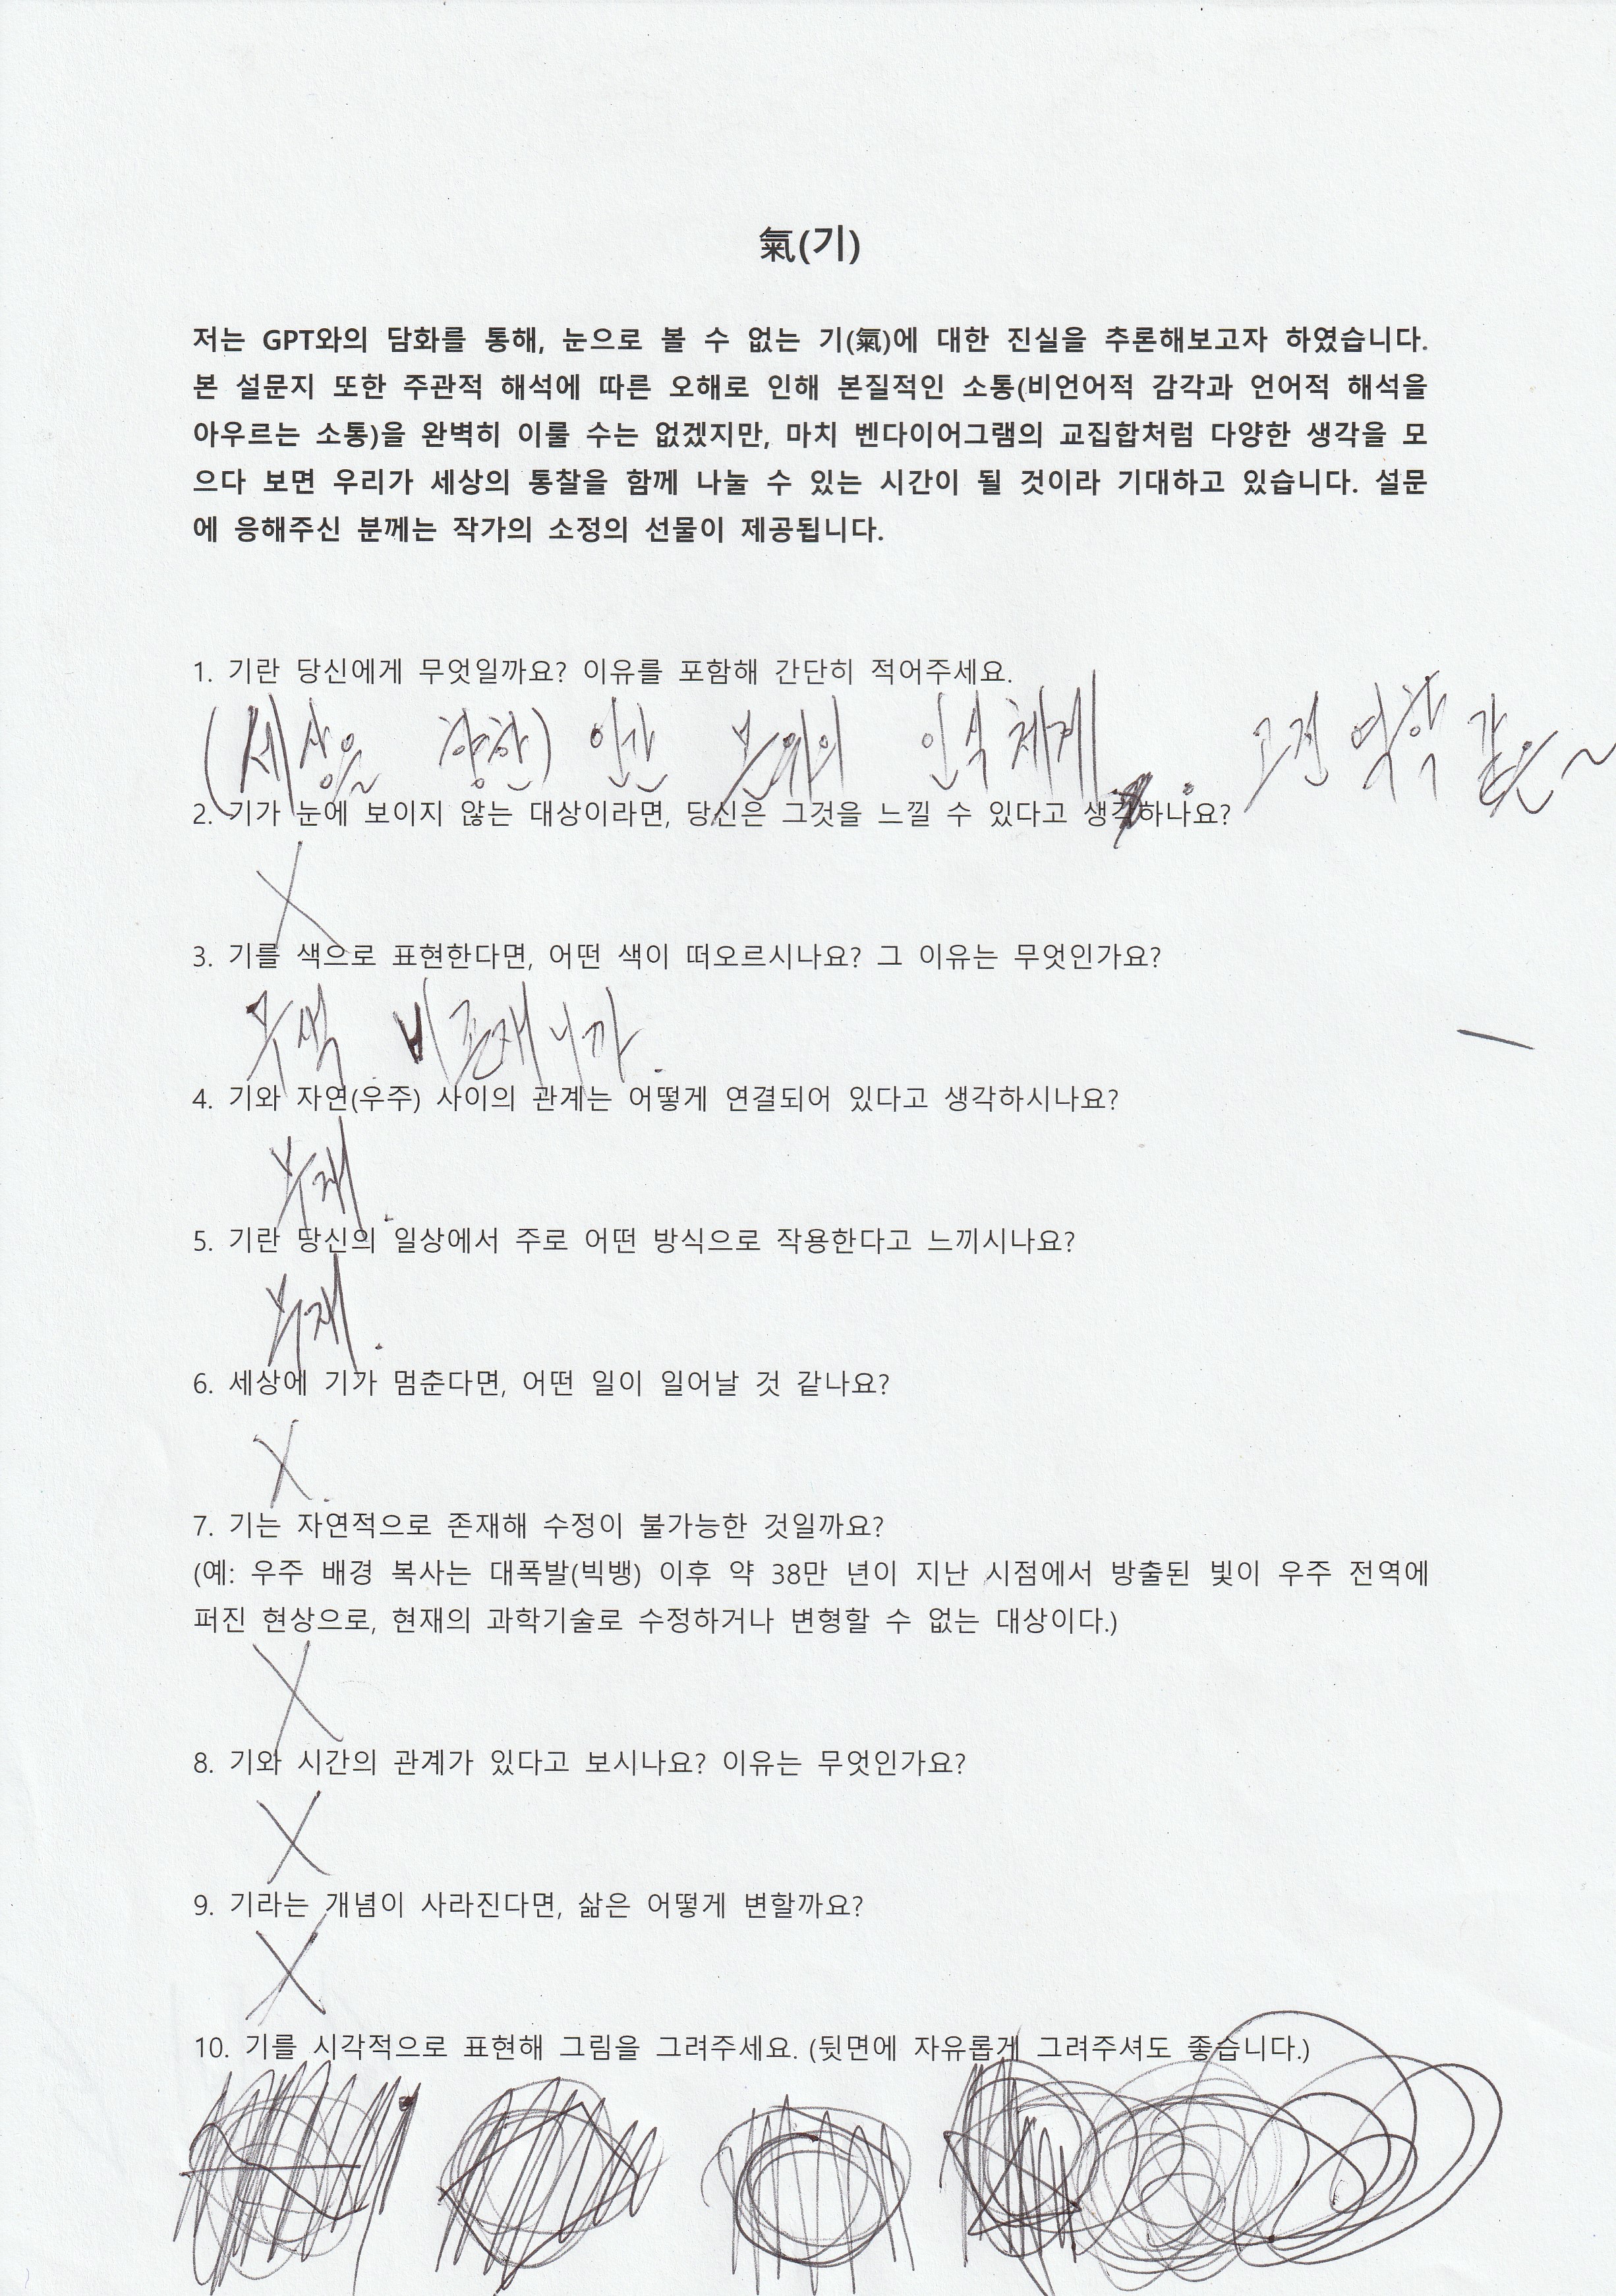 氣(기)
저는 GPT와의 담화를 통해, 눈으로 볼 수 없는 기(氣)에 대한 진실을 추론해보고자 하였습니다.
본 설문지 또한 주관적 해석에 따른 오해로 인해 본질적인 소통(비언어적 감각과 언어적 해석을
아우르는 소통)을 완벽히 이룰 수는 없겠지만, 마치 벤다이어그램의 교집합처럼 다양한 생각을 모
으다 보면 우리가 세상의 통찰을 함께 나눌 수 있는 시간이 될 것이라 기대하고 있습니다. 설문
에 응해주신 분께는 작가의 소정의 선물이 제공됩니다.
1. 기란 당신에게 무엇일까요? 이유를 포함해 간단히 적어주세요.
(세상을 향한) 인간 단위의 인식체계. 고전 역학 같은~
2. 기가 눈에 보이지 않는 대상이라면, 당신은 그것을 느낄 수 있다고 생각하나요?
X
3. 기를 색으로 표현한다면, 어떤 색이 떠오르시나요? 그 이유는 무엇인가요?
무색 비존재니까.
4. 기와 자연(우주) 사이의 관계는 어떻게 연결되어 있다고 생각하시나요?
부재.
5. 기란 당신의 일상에서 주로 어떤 방식으로 작용한다고 느끼시나요?
부재.
6. 세상에 기가 멈춘다면, 어떤 일이 일어날 것 같나요?
X.
7. 기는 자연적으로 존재해 수정이 불가능한 것일까요?
(예: 우주 배경 복사는 대폭발(빅뱅) 이후 약 38만 년이 지난 시점에서 방출된 빛이 우주 전역에
퍼진 현상으로, 현재의 과학기술로 수정하거나 변형할 수 없는 대상이다.)
X
8. 기와 시간의 관계가 있다고 보시나요? 이유는 무엇인가요?
X
9. 기라는 개념이 사라진다면, 삶은 어떻게 변할까요?
X
10. 기를 시각적으로 표현해 그림을 그려주세요. (뒷면에 자유롭게 그려주셔도 좋습니다.)